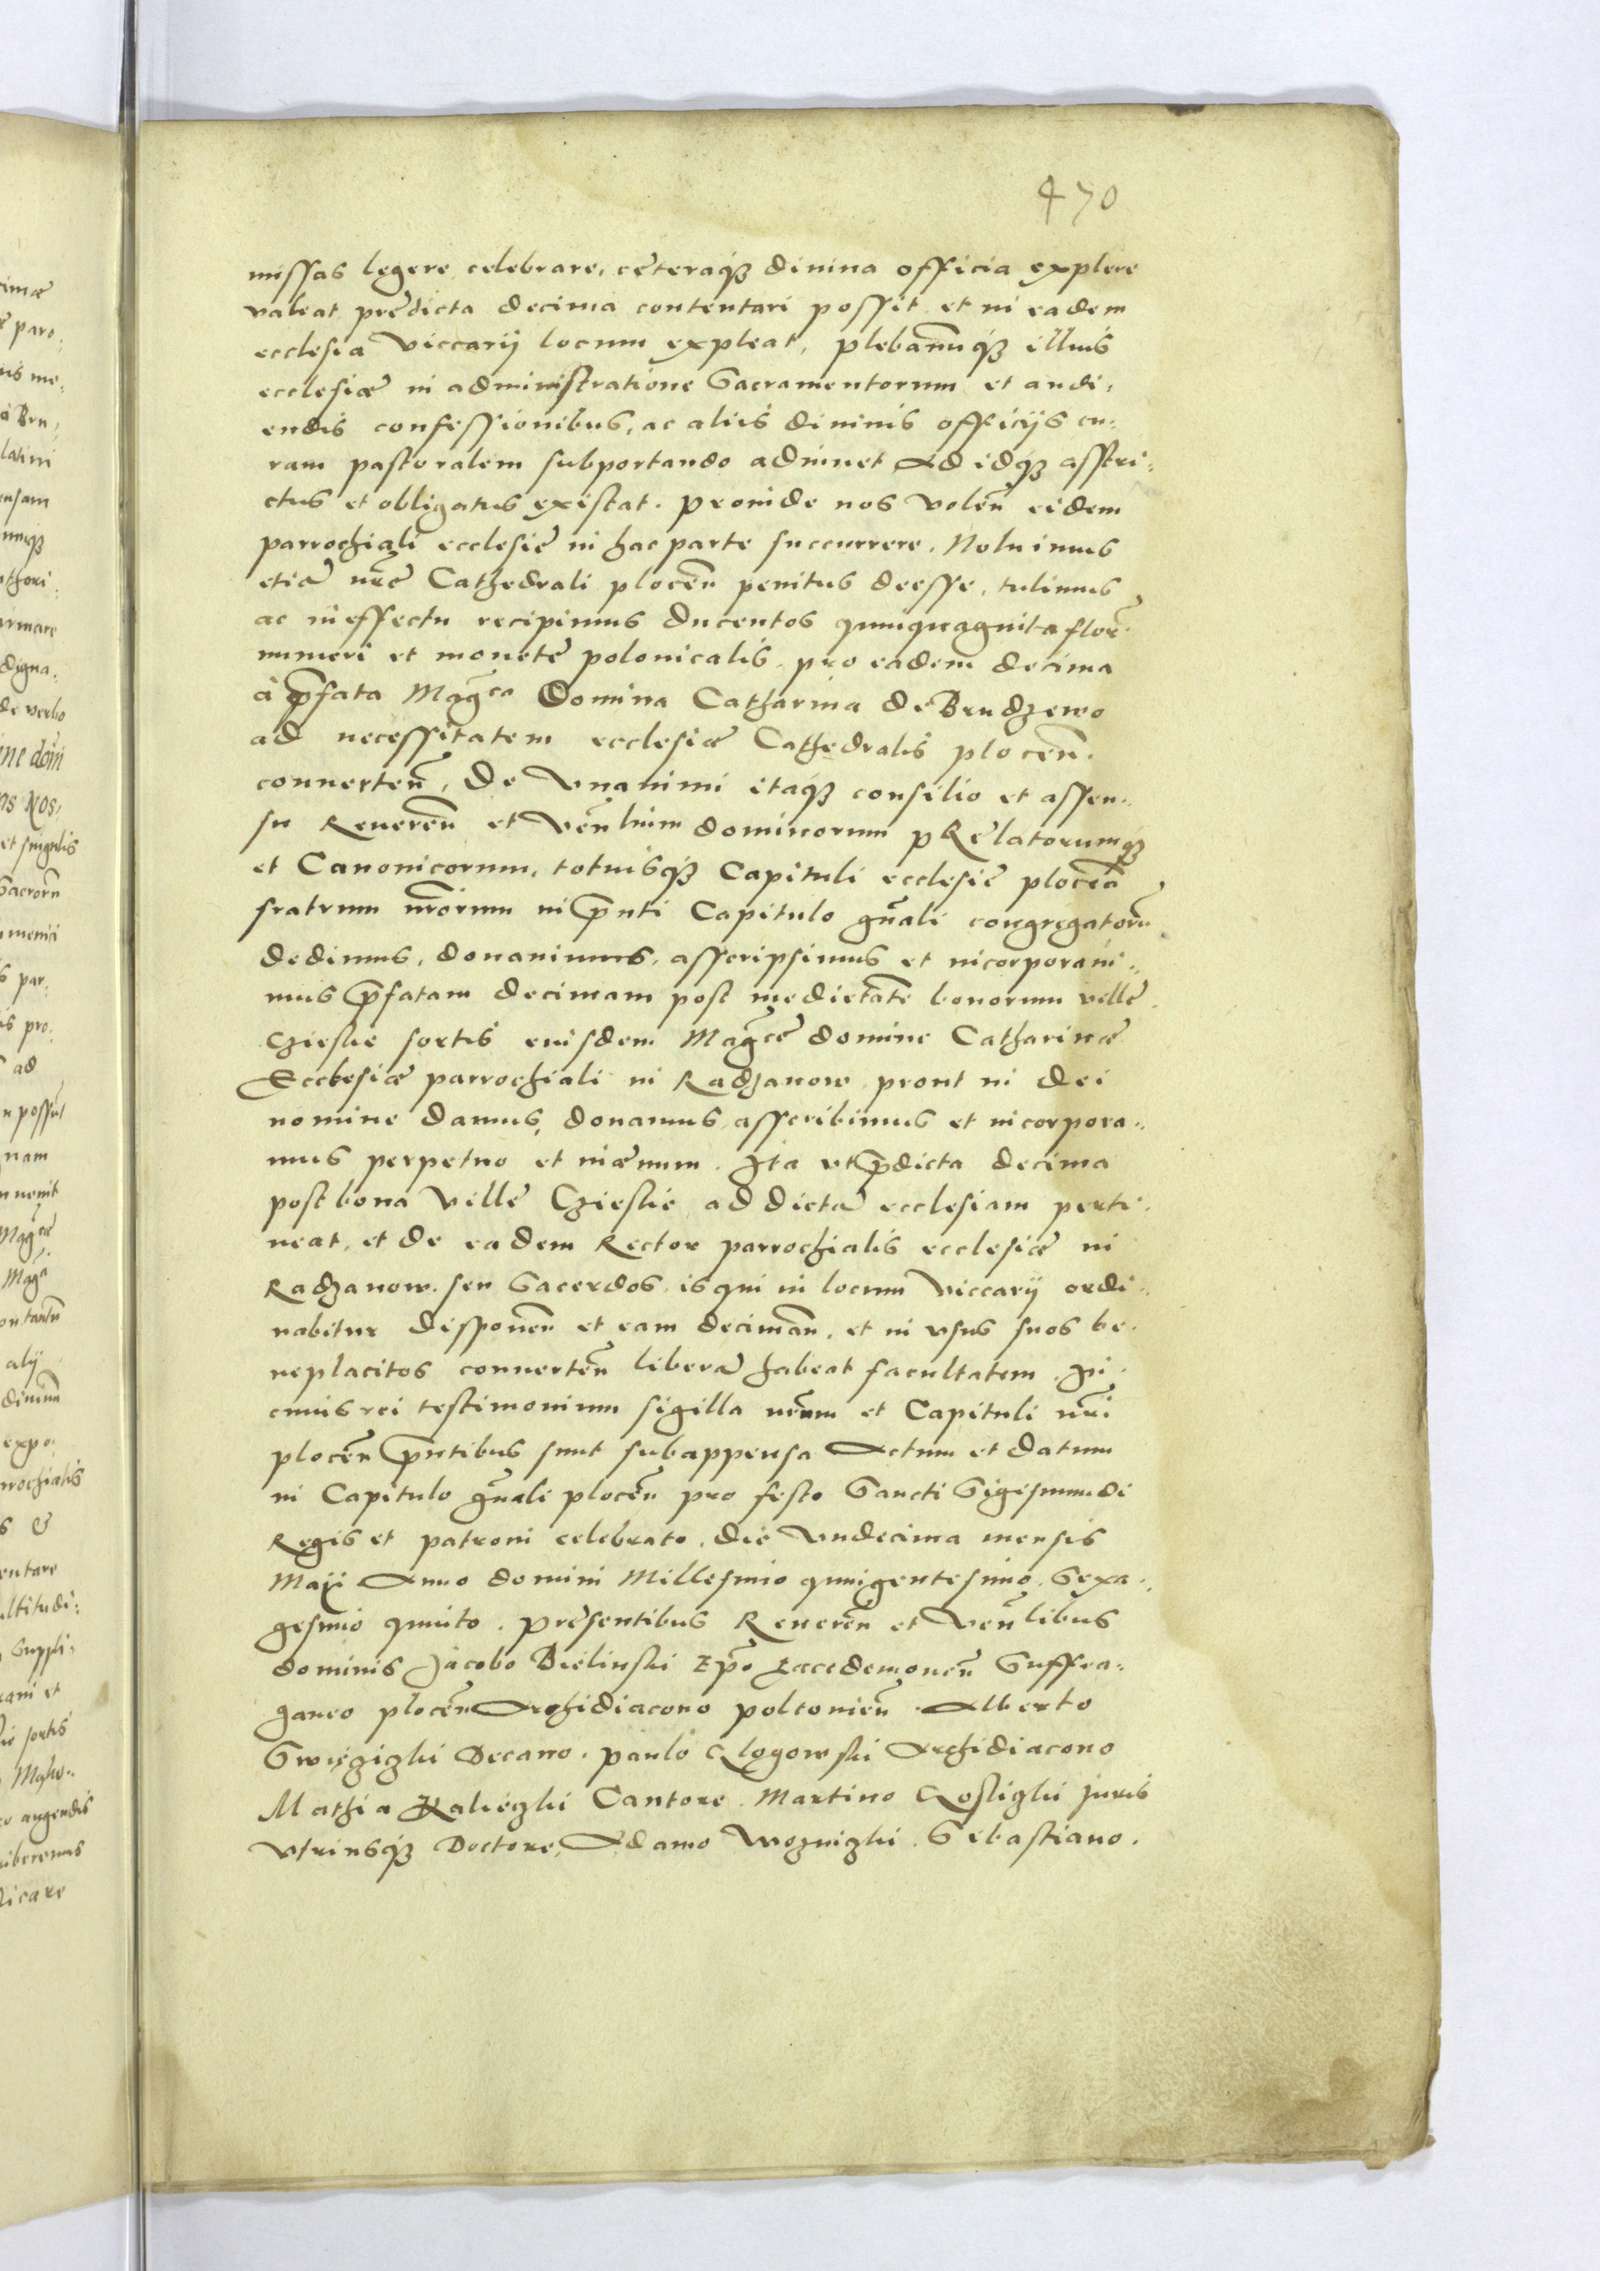 470
missas legere celebrare, ceteraq₃ diuina officia explere
valeat predicta decima contentari possit et in eadem
ecclesia Viccarij locum expleat, plebanumq₃ illius
ecclesiæ in administratione Sacramentorum et audi,
endis confessionibus, ac aliis diuinis officijs cu,
ram pastoralem subportando adiuuet Ad idq₃ asstri,
ctus et obligatus existat. Proinde nos volen̄ eidem
parrochiali ecclesiæ in hac parte succurrere. Noluimus
etiā nr̄e Cathedrali plocen̄ penitus deesse, tulimus
ac in effectu recipimus Ducentos quinquaginta flor̄
numeri et monete polonicalis, pro eadem decima
à p̄fata Maḡca Domina Catharina de Brudzewo
ad necessitatem ecclesiæ Cathedralis plocen̄.
conuerten̄, De Vnanimi itaq₃ consilio et assen,
su Reueren̄ et Ven̄lium dominorum pRelatorumq₃
et Canonicorum, totiusq₃ Capituli ecclesiæ plocen̄
fratrum nr̄orum in p̄nti Capitulo gn̄ali congregatorū
dedimus, donauimus, asscripsimus et incorporaui,
mus p̄fatam decimam post medietatē bonorum villæ
Czieslie sortis eiusdem Maḡcæ domine Catharinæ
Ecclesiæ parrochiali in Radzanow prout in Dei
nomine damus, donamus, asscribimus et incorpora,
mus perpetuo et in æuum. Ita vt p̄dicta decima
post bona Villæ Czieslie ad dictā ecclesiam perti,
neat, et de eadem Rector parrochialis ecclesiæ in
Radzanow. seu Sacerdos is qui in locum Viccarij ordi,
nabitur disponen̄ et eam deciman̄, et in vsus suos be,
neplacitos conuerten̄ liberā habeat facultatem. In
cuius rei testimonium sigilla nr̄um et Capituli nr̄i
plocen̄ p̄ntibus sunt subappensa Actum et Datum
in Capitulo gn̄ali plocen̄ pro festo Sancti Sigismundi
Regis et patroni celebrato, die Vndecima mensis
Maij Anno domini Millesimo quingentesimo Sexa,
gesimo quinto. Presentibus Reueren̄ et Ven̄libus
dominis Jacobo Bielinski Ep̄o Lacedemonen̄ Suffra,
ganeo plocen̄ Archidiacono poltouien̄ Alberto
Swięziczki Decano. Paulo Glogowski Archidiacono
Mathia Kaliczki Cantore. Martino Cosliczki juris
Vtriusq₃ Doctore, Adamo Wozniczki. Sebastiano.